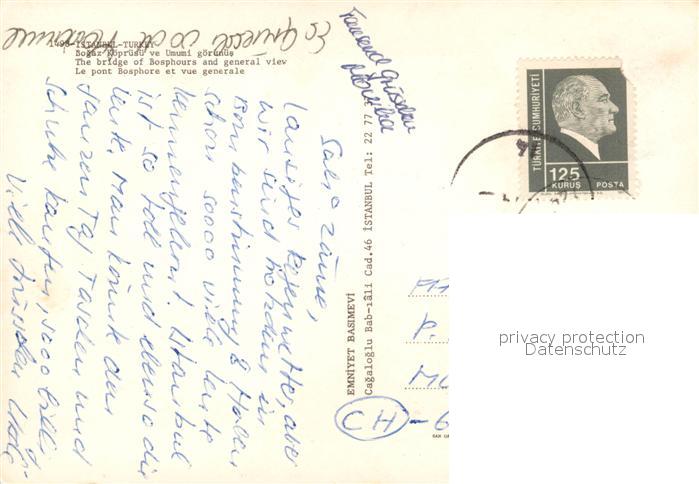 1498-İSTANBUL-TURKEY
Boğaz Köprüsü ve Umumi görünüş
The bridge of Bosphours and general view
Le pont Bosphore et vue generale
Es grüsst
Tausend Grüsse
Salü zäme,
lausiges wetter, aber
wir sind trotzdem in
Bombenstimmung & haben
schon sooo viele Leute
kennengelernt. Istanbul
ist so toll und ebenso die
Leute. Man könnte den
ganzen Tag Taschen und
Schuhe kaufen, sooo billig
Viele Grüsse
EMNİYET BASIMEVİ
Cağaloğlu Bab-ıâli Cad.46 İSTANBUL Tel: 22 77
TÜRKİYE CUMHURİYETİ
125
KURUŞ POSTA
P.
CH-6
privacy protection
Datenschutz